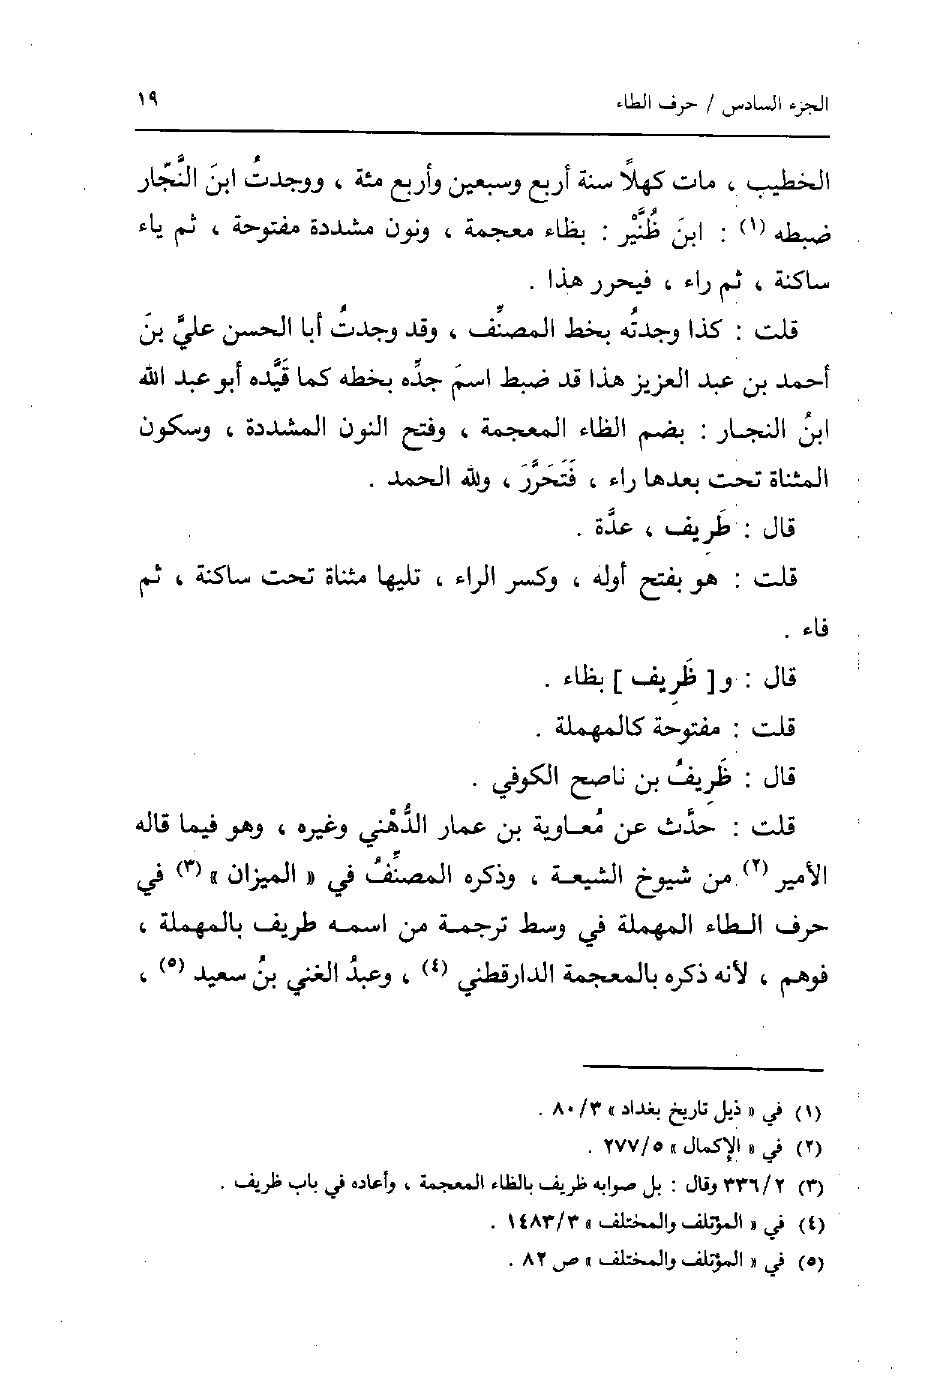 الجزء السادس / حرف الطاء ١٩
الخطيب ، مات كهلًا سنة أربع وسبعين وأربع مئة ، ووجدتُ ابنَ النَّجّار
ضبطه (١) : ابنَ ظُنَّيْر : بظاء معجمة ، ونون مشددة مفتوحة ، ثم ياء
ساكنة ، ثم راء ، فيحرر هذا .
قلت : كذا وجدتُه بخط المصنِّف ، وقد وجدتُ أبا الحسن عليَّ بنَ
أحمد بن عبد العزيز هذا قد ضبط اسمَ جدِّه بخطه كما قَيَّده أبو عبد الله
ابنُ النجار : بضم الظاء المعجمة ، وفتح النون المشددة ، وسكون
المثناة تحت بعدها راء ، فَتَحَرَّرَ ، ولله الحمد .
قال : طَرِيف ، عدَّة .
قلت : هو بفتح أوله ، وكسر الراء ، تليها مثناة تحت ساكنة ، ثم
فاء .
قال : و[ ظَرِيف ] بظاء .
قلت : مفتوحة كالمهملة .
قال : ظَرِيفُ بن ناصح الكوفي .
قلت : حدَّث عن مُعاوية بن عمار الدُّهْني وغيره ، وهو فيما قاله
الأمير (٢) من شيوخ الشيعة ، وذكره المصنِّفُ في « الميزان » (٣) في
حرف الطاء المهملة في وسط ترجمة من اسمه طريف بالمهملة ،
فوهم ، لأنه ذكره بالمعجمة الدارقطني (٤) ، وعبدُ الغني بنُ سعيد (٥) ،
(١) في « ذيل تاريخ بغداد » ٨٠/٣ .
(٢) في « الإكمال » ٢٧٧/٥ .
(٣) ٣٣٦/٢ وقال : بل صوابه ظريف بالظاء المعجمة ، وأعاده في باب ظريف .
(٤) في « المؤتلف والمختلف » ١٤٨٣/٣ .
(٥) في « المؤتلف والمختلف » ص ٨٢ .